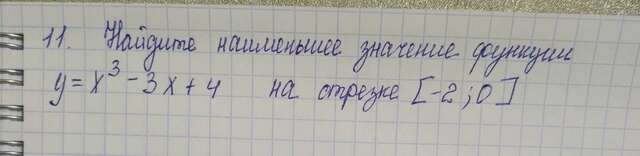 11. Найдите наименьшее значение функции
y = x³ - 3x + 4 на отрезке [-2; 0]